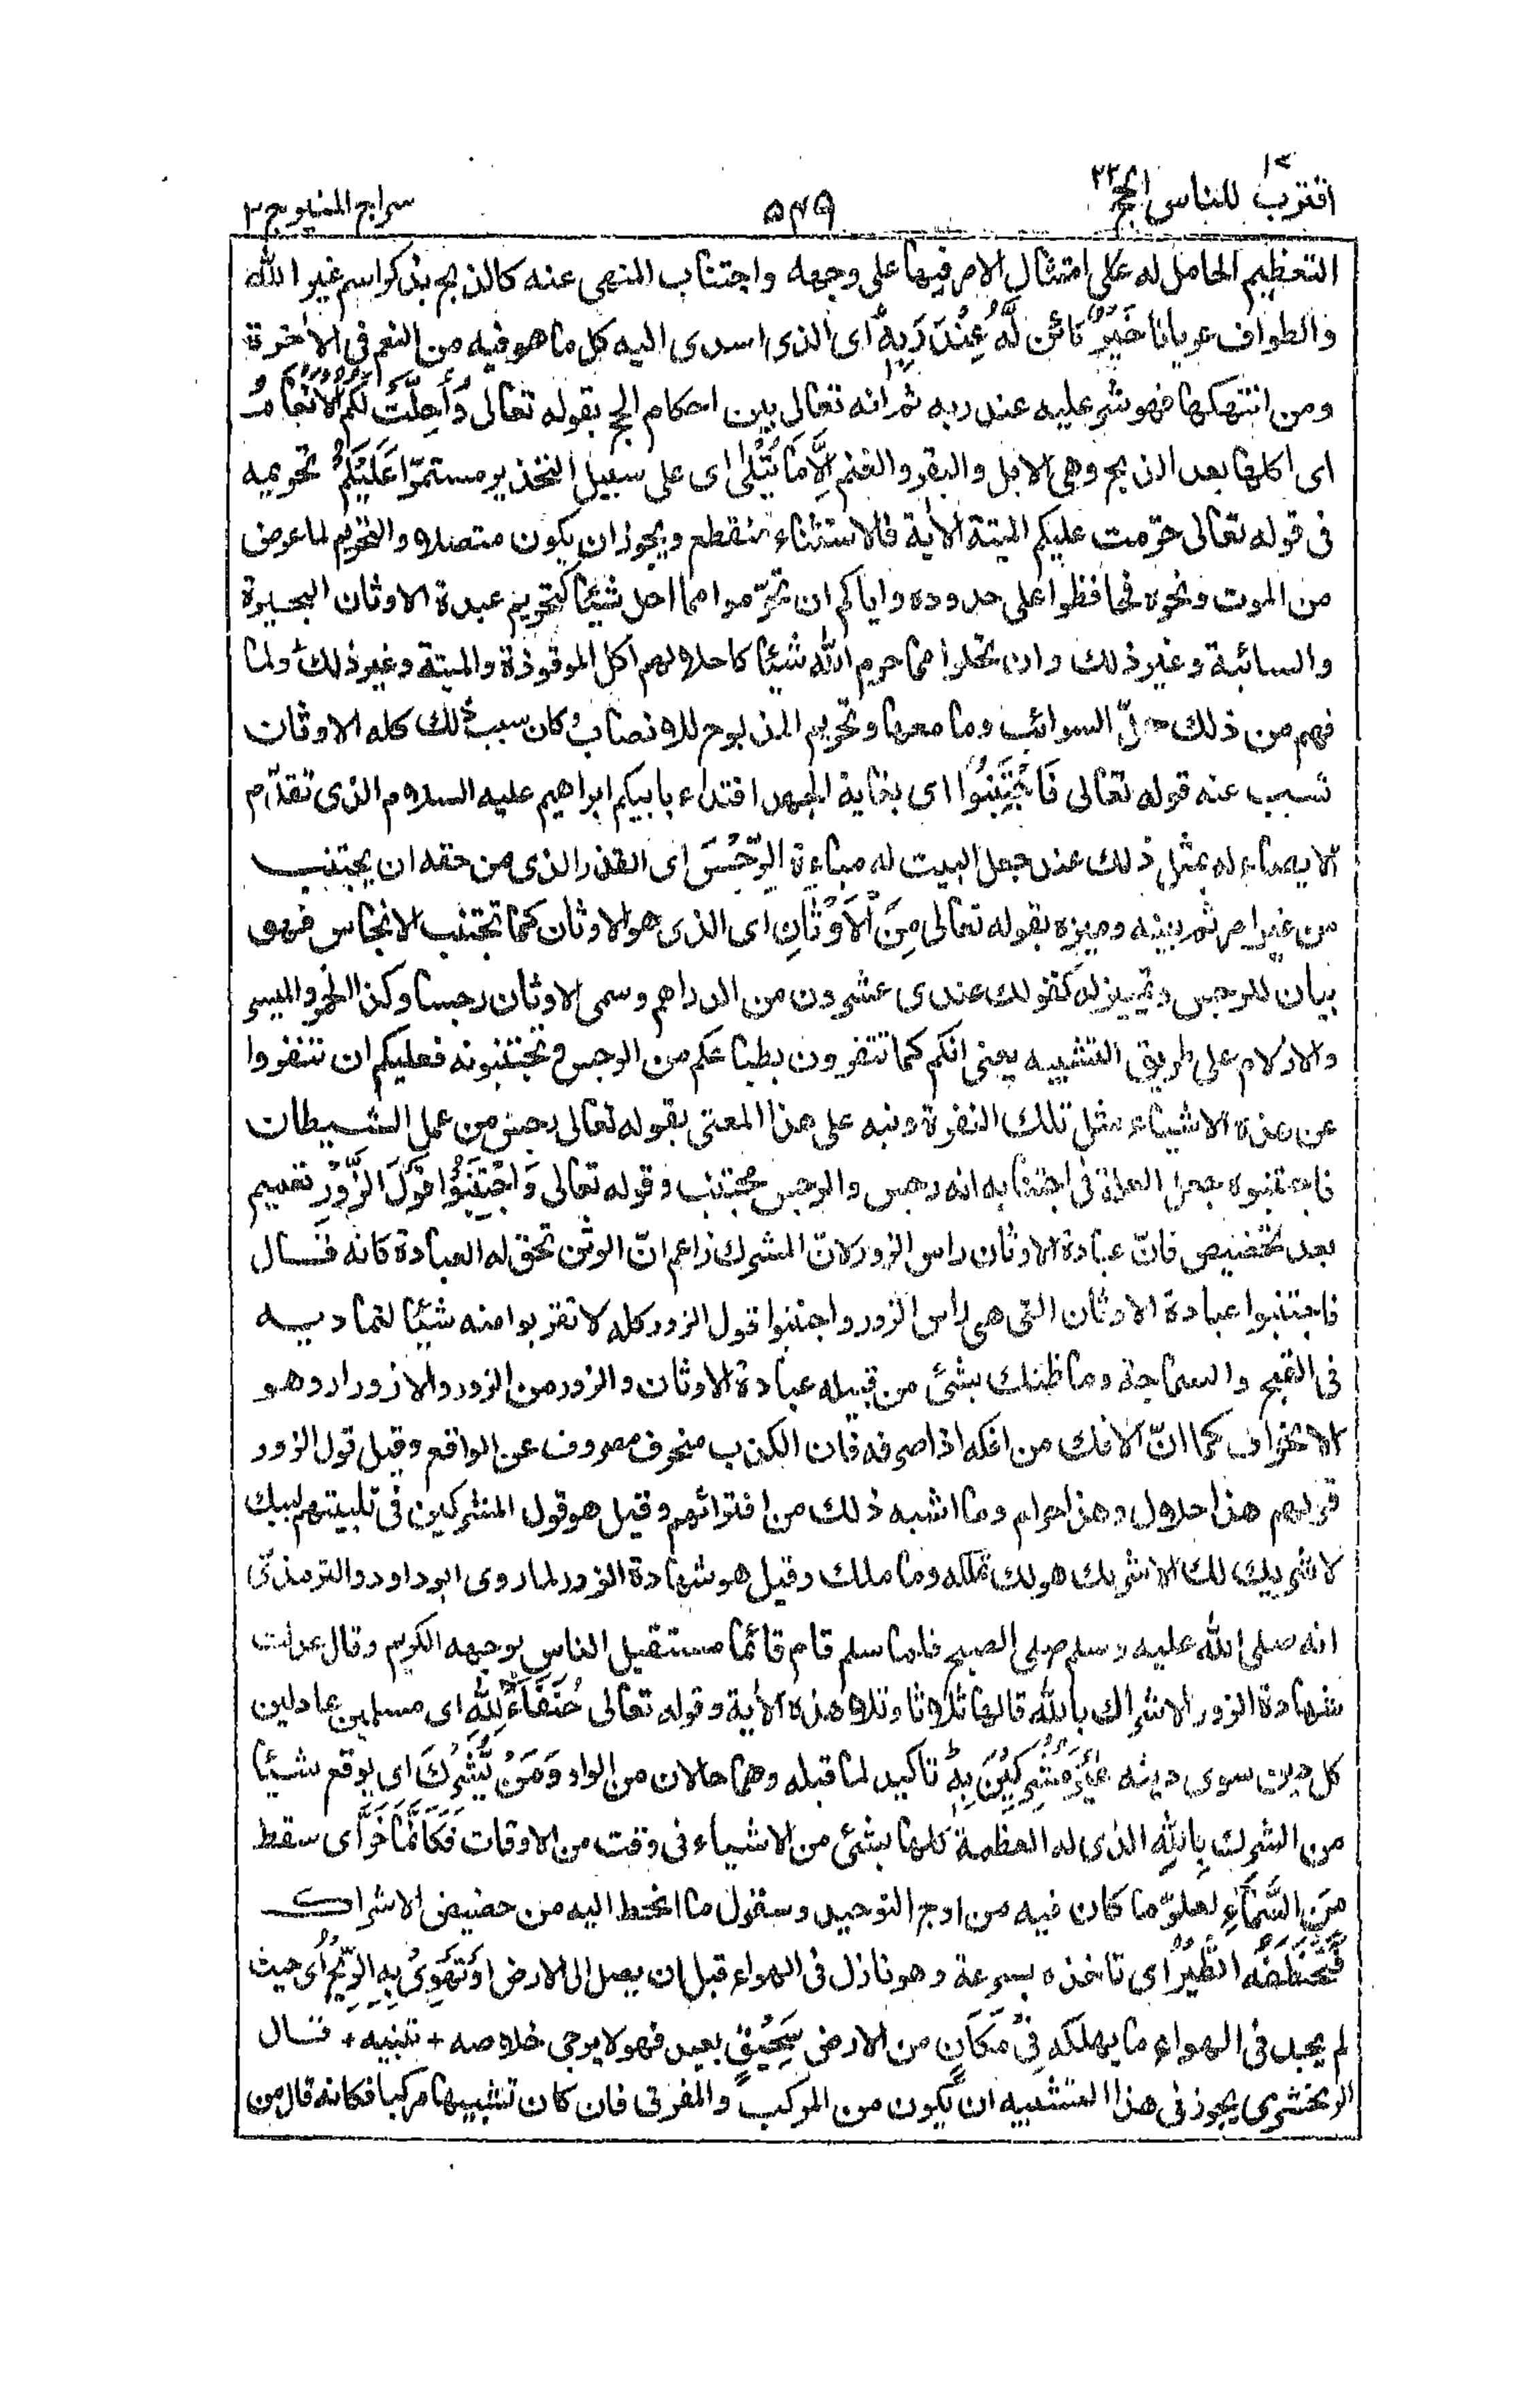 اقترب للناس ١٧ الحج ٢٢
٥٤٩
سراج المنير ج ٢
التعظيم الحامل له على امتثال الامر فيها على وجهه واجتناب المنهى عنه كالذبح بذكر اسم غير الله
والطواف عريانا خَيْرٌ كائن لَّهٗ عِنْدَ رَبِّهٖ اى الذى اسدى اليه كل ما هو فيه من النعم فى الاٰخرة
ومن انتهكها فهو شر عليه عند ربه ثم انه تعالى بين احكام الحج بقوله تعالى وَاُحِلَّتْ لَكُمُ الْاَنْعَامُ
اى اكلها بعد الذبح وهى الابل والبقر والغنم اِلَّا مَا يُتْلٰى اى على سبيل التحذير مستمرّا عَلَيْكُمْ تحريمه
فى قوله تعالى حرّمت عليكم الميتة الاٰية فالاستثناء منقطع ويجوز ان يكون متصلا والتحريم لما عرض
من الموت ونحوه فحافظوا على حدوده واياكم ان تحرّموا مما احل شيئا كتحريم عبدة الاوثان البحيرة
والسائبة وغير ذلك وان تحلوا مما حرم الله شيئا كاحلالهم اكل الموقوذة والميتة وغير ذلك ولما
فهم من ذلك حلّ السوائب وما معها وتحريم المذبوح للانصاب وكان سبب ذلك كله الاوثان
تسبب عنه قوله تعالى فَاجْتَنِبُوْا اى بغاية الجهد اقتداء بابيكم ابراهيم عليه السلام الذى تقدّم
الايصاء له بمثل ذلك عند جعل البيت له مباءة الرِّجْسَ اى القذر الذى من حقه ان يجتنب
من غير امر ثم بينه وميزه بقوله تعالى مِنَ الْاَوْثَانِ اى الذى هو الاوثان كما تجتنب الانجاس فهو
بيان للرجس وتمييز له كقولك عندى عشرون من الدراهم وسمى الاوثان رجسا وكذا الخمر والميسر
والازلام على طريق التشبيه يعنى انكم كما تتفرون بطباعكم من الرجس وتجتنبونه فعليكم ان تنفروا
عن هذه الاشياء مثل تلك النفرة ونبه على هذا المعنى بقوله تعالى رجس من عمل الشيطان
فاجتنبوه جعل العلة فى اجتنابه انه رجس والرجس مجتنب وقوله تعالى وَاجْتَنِبُوْا قَوْلَ الزُّوْرِ تعميم
بعد تخصيص فانّ عبادة الاوثان راس الزور لانّ المشرك زاعم انّ الوثن تحق له العبادة كانه قال
فاجتنبوا عبادة الاوثان التى هى راس الزور واجتنبوا قول الزور كله لا تقربوا منه شيئا لتماديه
فى القبح والسماجة وما ظنك بشئ من قبيله عبادة الاوثان والزور من الزور والازورار وهو
الانحراف كما انّ الافك من افكه اذا صرفه فان الكذب منحرف مصروف عن الواقع وقيل قول الزور
قولهم هذا حلال وهذا حرام وما اشبه ذلك من افترائهم وقيل هو قول المشركين فى تلبيتهم لبيك
لا شريك لك الا شريك هو لك تملكه وما ملك وقيل هو شهادة الزور لما روى ابو داود والترمذىّ
انه صلى الله عليه وسلم صلى الصبح فلما سلم قام قائما مستقبل الناس بوجهه الكريم وقال عدلت
شهادة الزور الاشراك بالله قالها ثلاثا وتلا هذه الاٰية وقوله تعالى حُنَفَآءَ لِلّٰهِ اى مسلمين عادلين
كل دين سوى دينه غَيْرَ مُشْرِكِيْنَ بِهٖ تاكيد لما قبله وهما حالان من الواو وَمَنْ يُّشْرِكْ اى يوقع شيئا
من الشرك بِاللّٰهِ الذى له العظمة كلها بشئ من الاشياء فى وقت من الاوقات فَكَاَنَّمَا خَرَّ اى سقط
مِنَ السَّمَآءِ لعلوّ ما كان فيه من اوج التوحيد وسفول ما انحط اليه من حضيض الاشراك
فَتَخْطَفُهُ الطَّيْرُ اى تاخذه بسرعة وهو نازل فى الهواء قبل ان يصل الى الارض اَوْ تَهْوِىْ بِهِ الرِّيْحُ اى حيث
لم يجد فى الهواء ما يهلكه فِىْ مَكَانٍ من الارض سَحِيْقٍ بعيد فهو لا يرجى خلاصه + تنبيه + قال
الزمخشرى يجوز فى هذا التشبيه ان يكون من المركب والمفرق فان كان تشبيها مركبا فكانه قال من